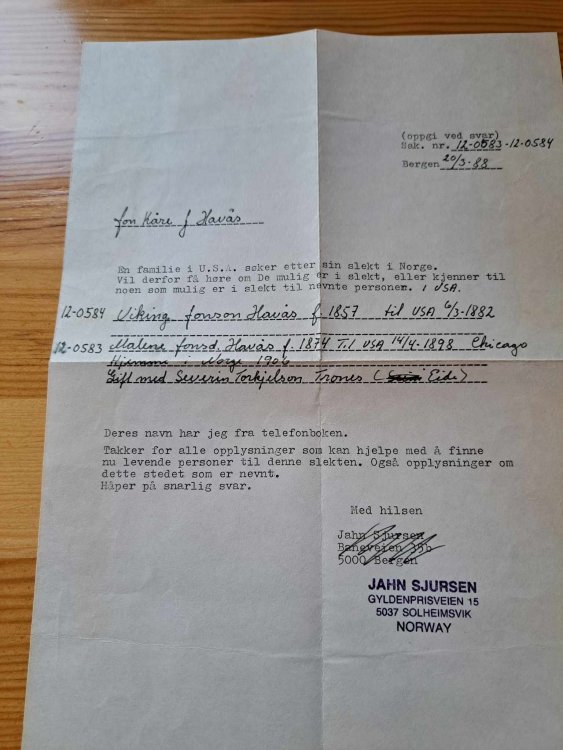 (oppgi ved svar)
Sak. nr. 12-0583-12-0584
Bergen 20/3-88
Jon Kåre J Havås
En familie i U.S.A. søker etter sin slekt i Norge.
Vil derfor få høre om De mulig er i slekt, eller kjenner til
noen som mulig er i slekt til nevnte personer. i USA.
12-0584 Viking Jonson Havås f 1857 til USA 6/3-1882
12-0583 Malene Jonsd. Havås f. 1874 Til USA 14/4-1898 Chicago
Hjemme i Norge 1906
Gift med Severin Torkjelson Trones ( Eide)
Deres navn har jeg fra telefonboken.
Takker for alle opplysninger som kan hjelpe med å finne
nu levende personer til denne slekten. Også opplysninger om
dette stedet som er nevnt.
Håper på snarlig svar.
Med hilsen
Jahn Sjursen
5000 Bergen
JAHN SJURSEN
GYLDENPRISVEIEN 15
5037 SOLHEIMSVIK
NORWAY